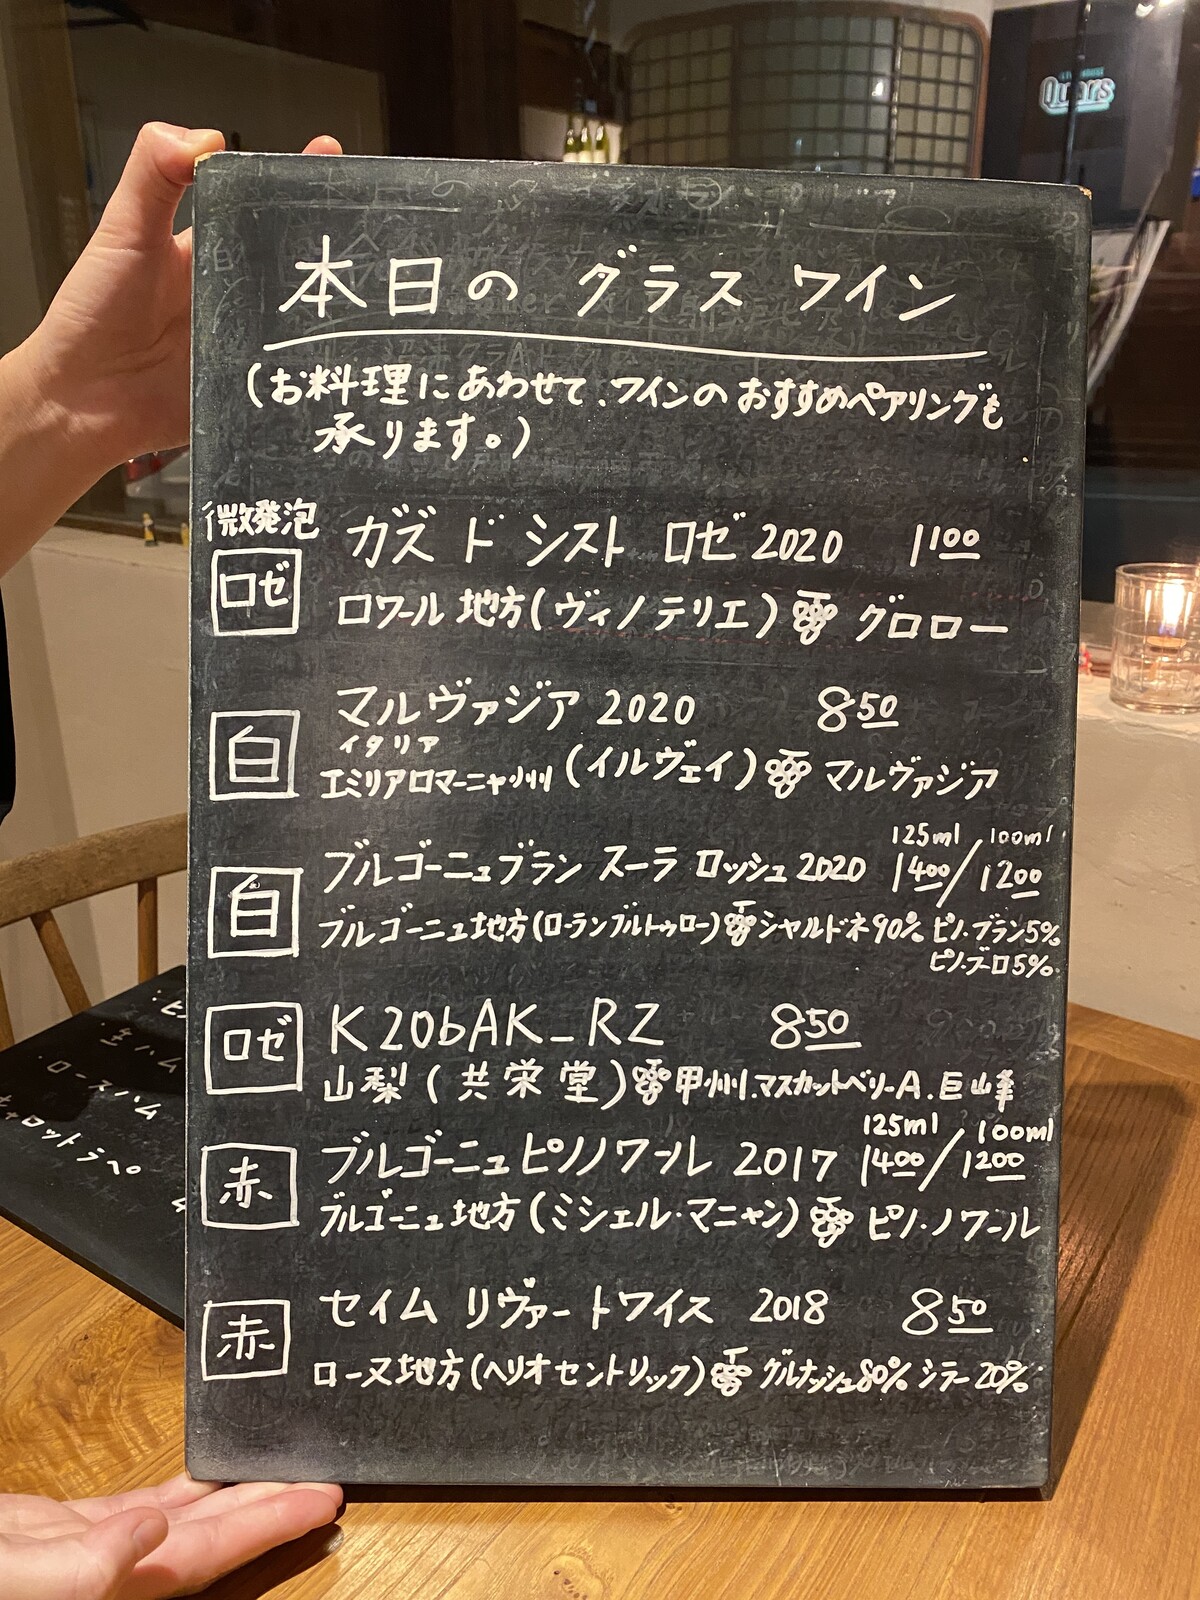 本日の グラス ワイン
(お料理にあわせて、ワインの おすすめペアリングも
承ります。)
微発泡
ロゼ
ガズ ド シスト ロゼ 2020 1100
ロワール 地方(ヴィノ テリエ) グロロー
白
マルヴァジア 2020 850
イタリア
エミリアロマーニャ州 (イルヴェイ) マルヴァジア
125ml / 100ml
白
ブルゴーニュブラン スーラ ロッシュ 2020 1400 / 1200
ブルゴーニュ地方(ローランブルトゥロー) シャルドネ90% ピノ・ブラン5%
ピノ・ブーロ5%
ロゼ
K20bAK_RZ 850
山梨 (共栄堂) 甲州.マスカットベリーA.巨峰
125ml / 100ml
赤
ブルゴーニュピノノワール 2017 1400 / 1200
ブルゴーニュ地方 (ミシェル・マニャン) ピノ・ノワール
赤
セイム リヴァートワイス 2018 850
ローヌ地方(ヘリオセントリック) グルナッシュ80% シラー20%
生ハム
・ロースハム
キャロットラペ